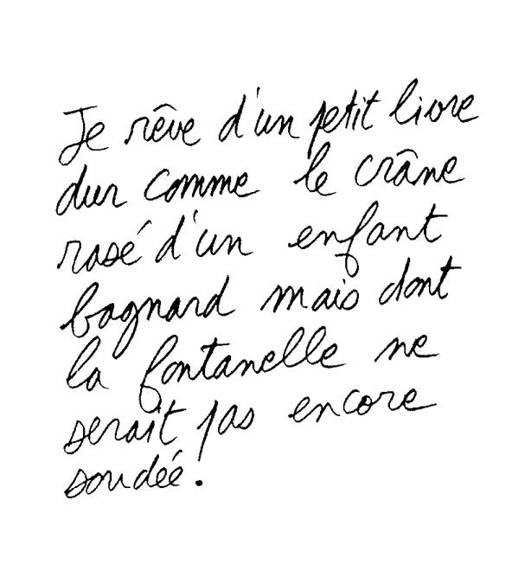 Je rêve d'un petit livre
dur comme le crâne
rasé d'un enfant
bagnard mais dont
la fontanelle ne
serait pas encore
soudée.